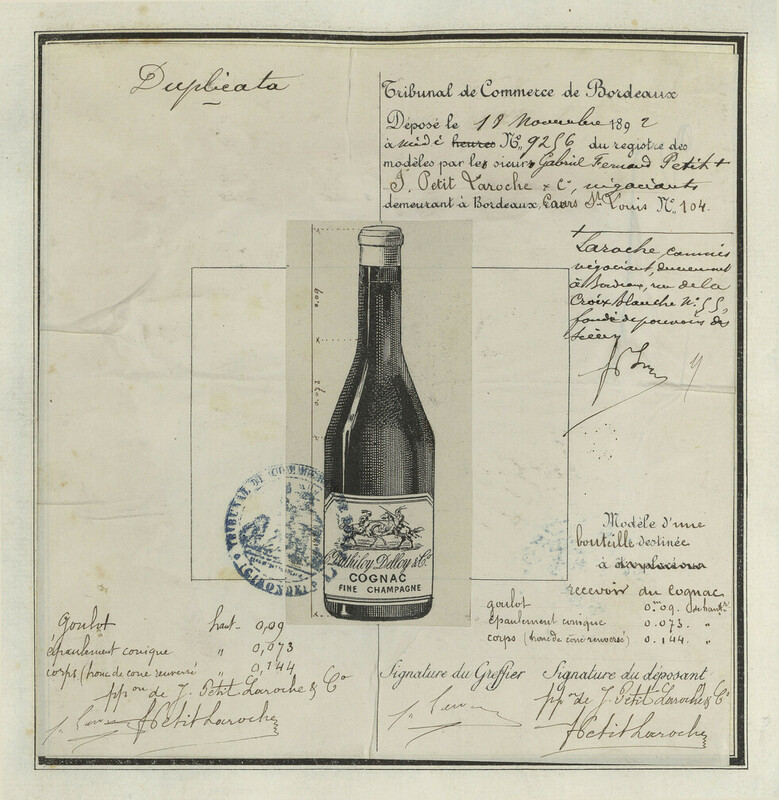 Duplicata
Tribunal de Commerce de Bordeaux
Déposé le 18 Novembre 1892
à midi heures No. 9256 du registre des
modèles par les sieurs Gabriel Fernand Petit +
J. Petit Laroche & Cie, négociants
demeurant à Bordeaux, Cours St Louis No. 104.
+
Laroche, commis
négociant, demeurant
à Bordeaux, rue de la
Croix Blanche No. 55,
fondé de pouvoirs des
sieurs
0.09
0.073
TRIBUNAL DE COMMERCE
(GIRONDE)
Dathiloy, Delloy & Co.
COGNAC
FINE CHAMPAGNE
Modèle d'une
bouteille destinée
à
recevoir du Cognac
goulot 0m.09. de haut.
épaulement conique 0.073. "
corps (tronc de cône renversé) 0.144. "
Goulot haut. 0,09
épaulement conique " 0,073
corps (tronc de cône renversé " 0,144
ppon de J. Petit Laroche & Co
f Petit Laroche
Signature du Greffier
Signature du déposant
ppon de J. Petit Laroche & Co
f Petit Laroche